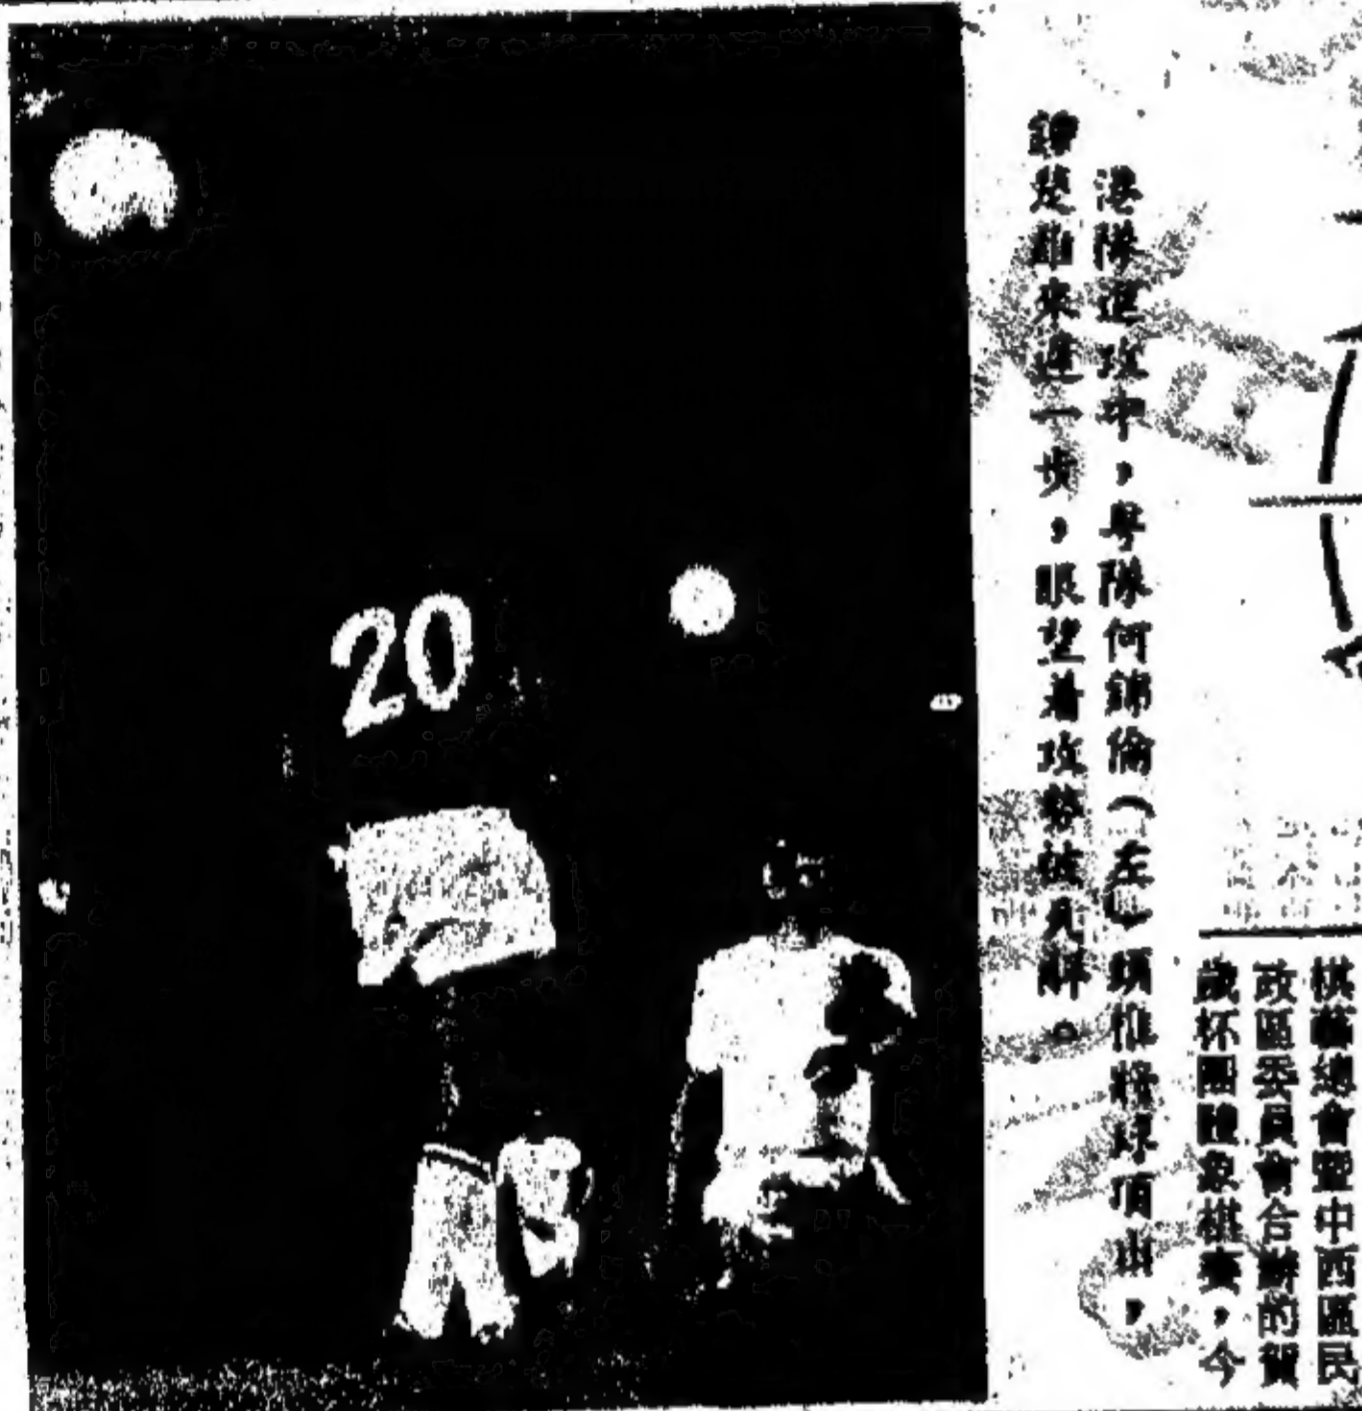 港隊進攻中，粵隊何錦倫（左）搶將球頂出，
來遲一步，眼望着攻勢被瓦解。
棋藝總會暨中西區民
政區委員會合辦的賀
歲杯團體象棋賽，今
20